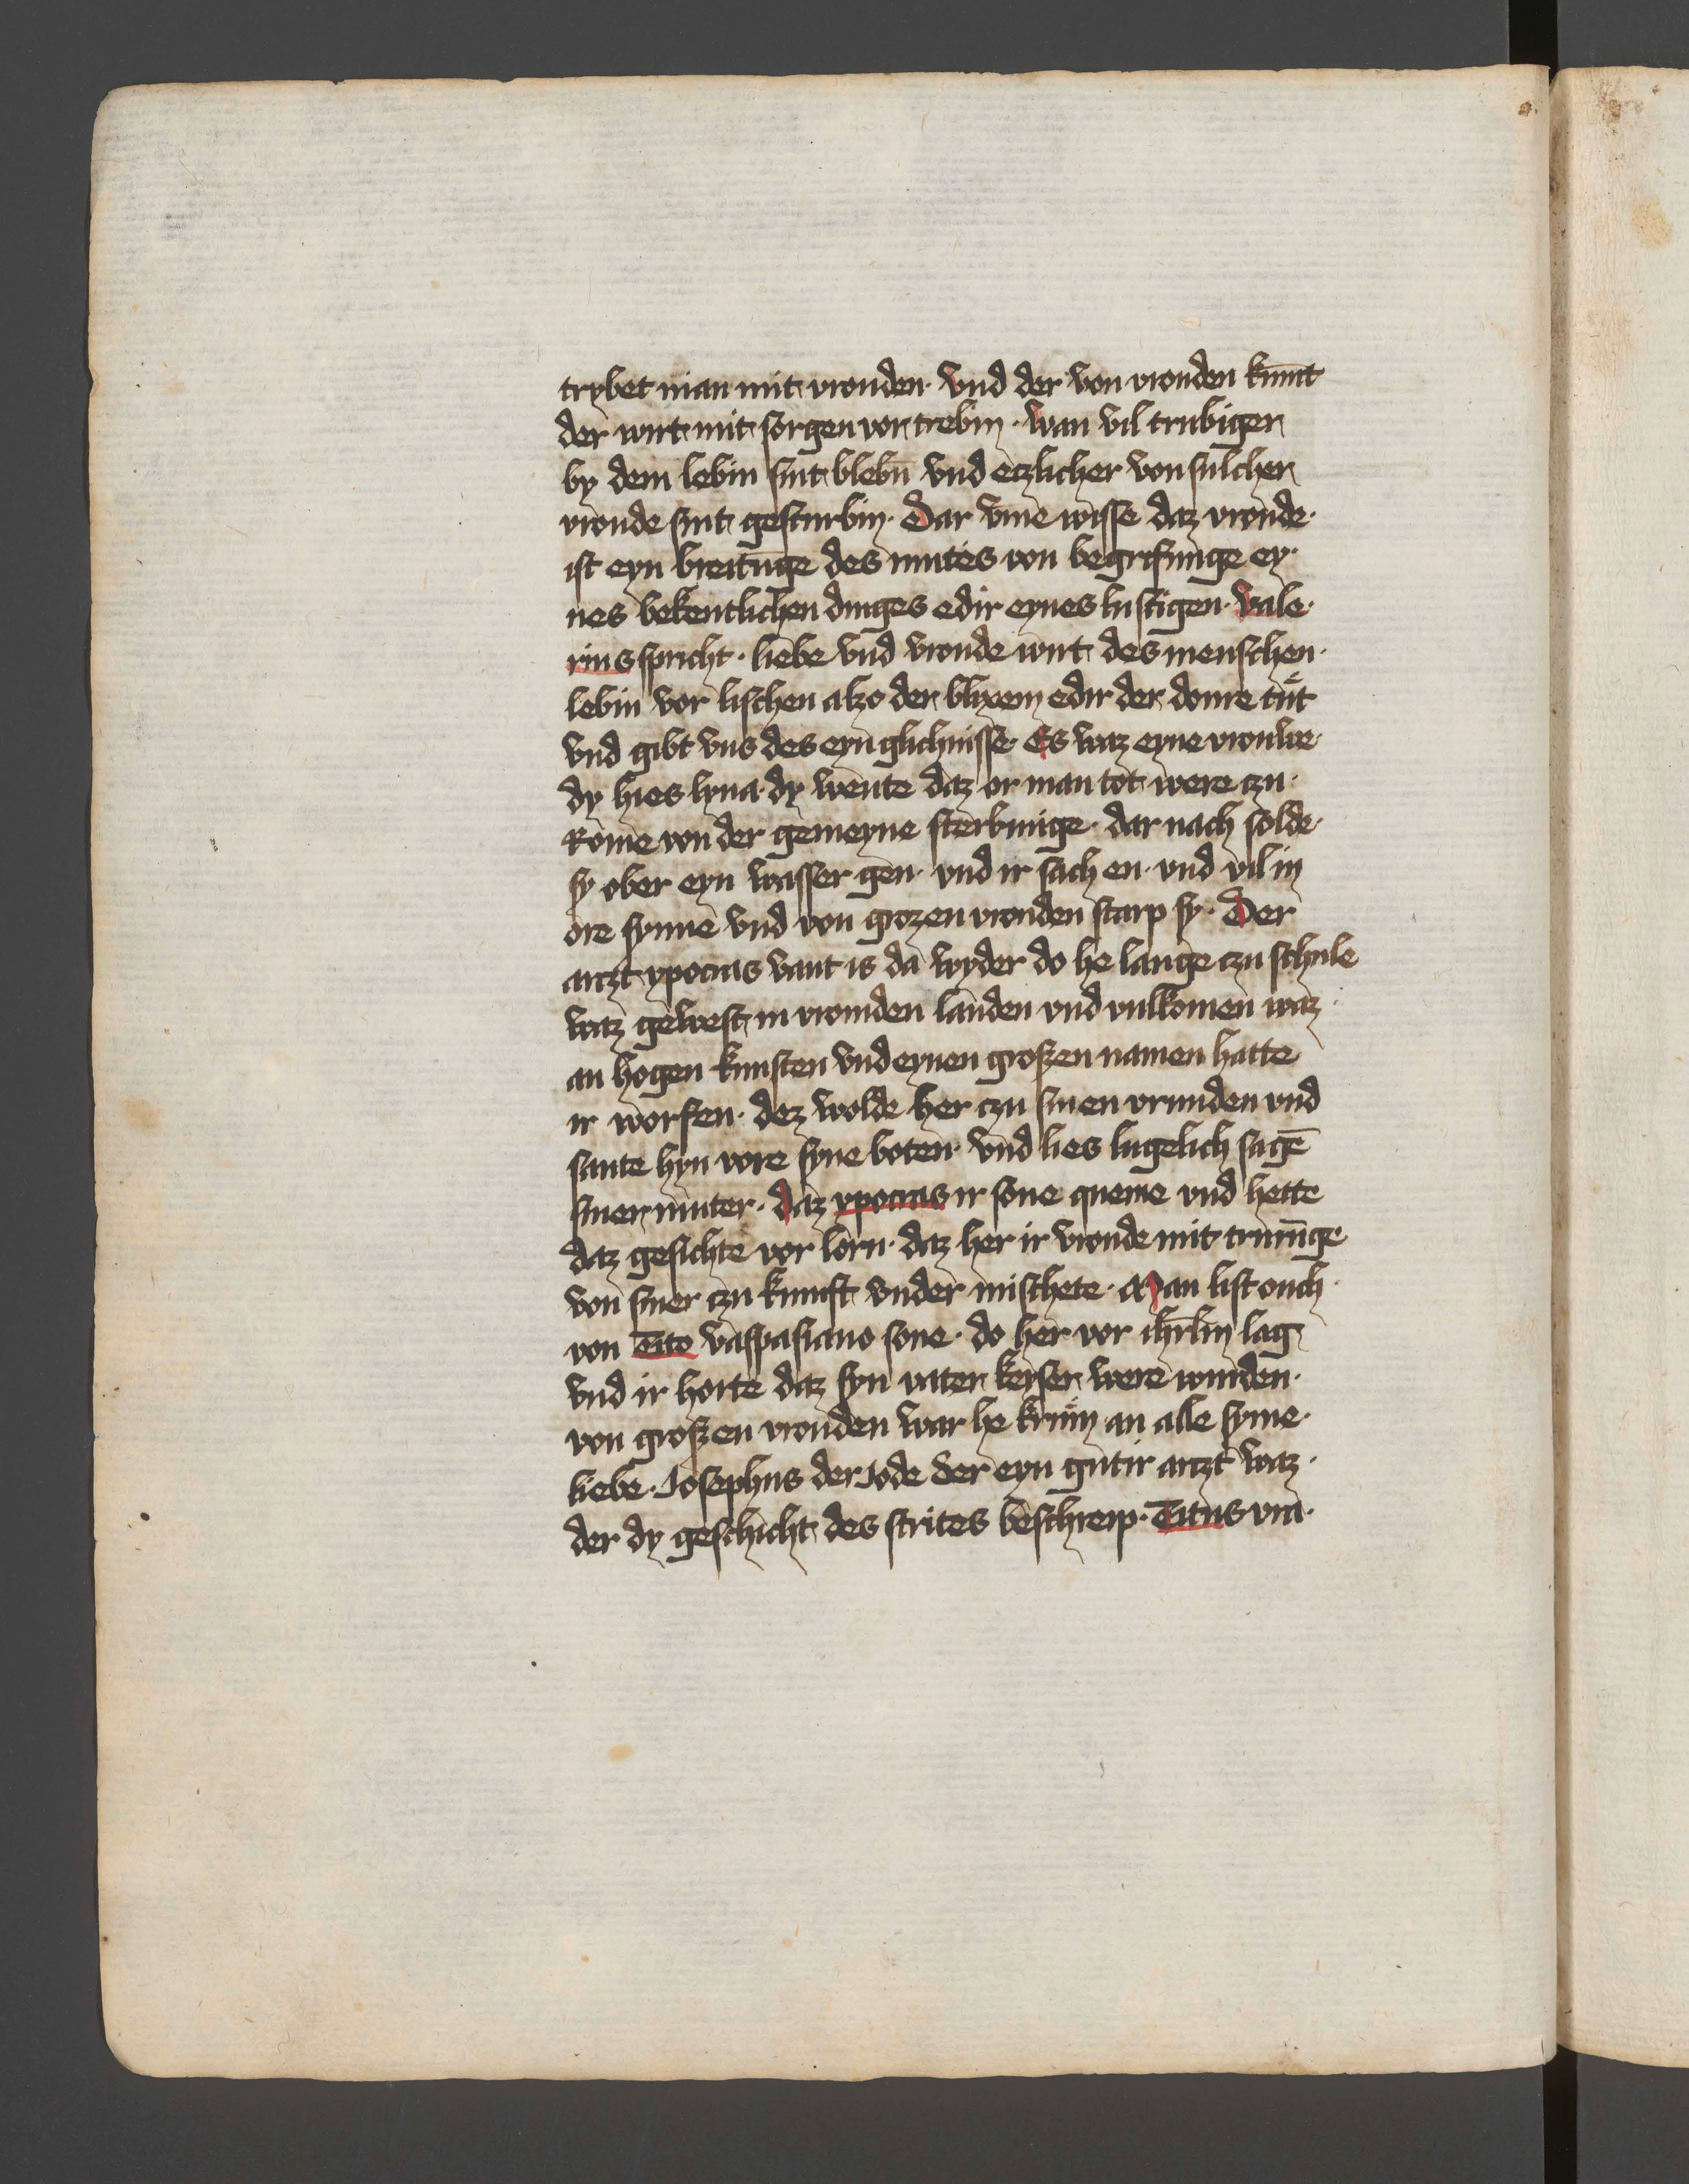 trybet man mit vrouden · vnd der von vrouden kūmt
der wirt mit sorgen vortrebin · wan vil trubiger
by dem lebin sint blebn̄ vnd etzlicher von sulcher
vroude sint gesturbin · Dar vme wisse daz vroude ·
ist eyn breitunge des mutes von begrifunge ey·
nes bekentlichen dinges edir eynes lustigen · Vale·
rius spricht · liebe vnd vroude wirt des menschen ·
lebin vor lischen alzo der blixem edir der donre tut
vnd gibt vns des eyn glichnisse · Es waz eyne vrouwe
dy hies lyna · dy wente daz or man tot were czu ·
Rome von der gemeyne sterbunge · dar nach solde
sy ober eyn wasser gen · vnd ir sach en · vnd vil in
ore synne vnd von grozen vrouden starp sy · Der
arczt ypocras vant is da wyder do he lange czu schule
waz gewest in vromden landen vnd vulkomen waz ·
an hogen kunsten vnd eynen groszen namen hatte
ir worfen · dez wolde her czu sinen vrunden vnd
sante hyn vore syne boten · vnd lies lugelich sagē
siner muter · daz ypocras ir sone queme vnd hette
daz gesichte vor lorn · daz her ir vroude mit trurūge
von siner czu kunft vnder mischete · Man list ouch ·
von Tito vaspasiano sone · do her vor ihrlm̄ lag
vnd ir horte daz syn vater keyser were wurden ·
von groszen vrouden war he krum an alle syme ·
liebe · Josephus der Jode der eyn gutir arczt waz ·
der dy geschicht des strites beschreip · Titus vra·